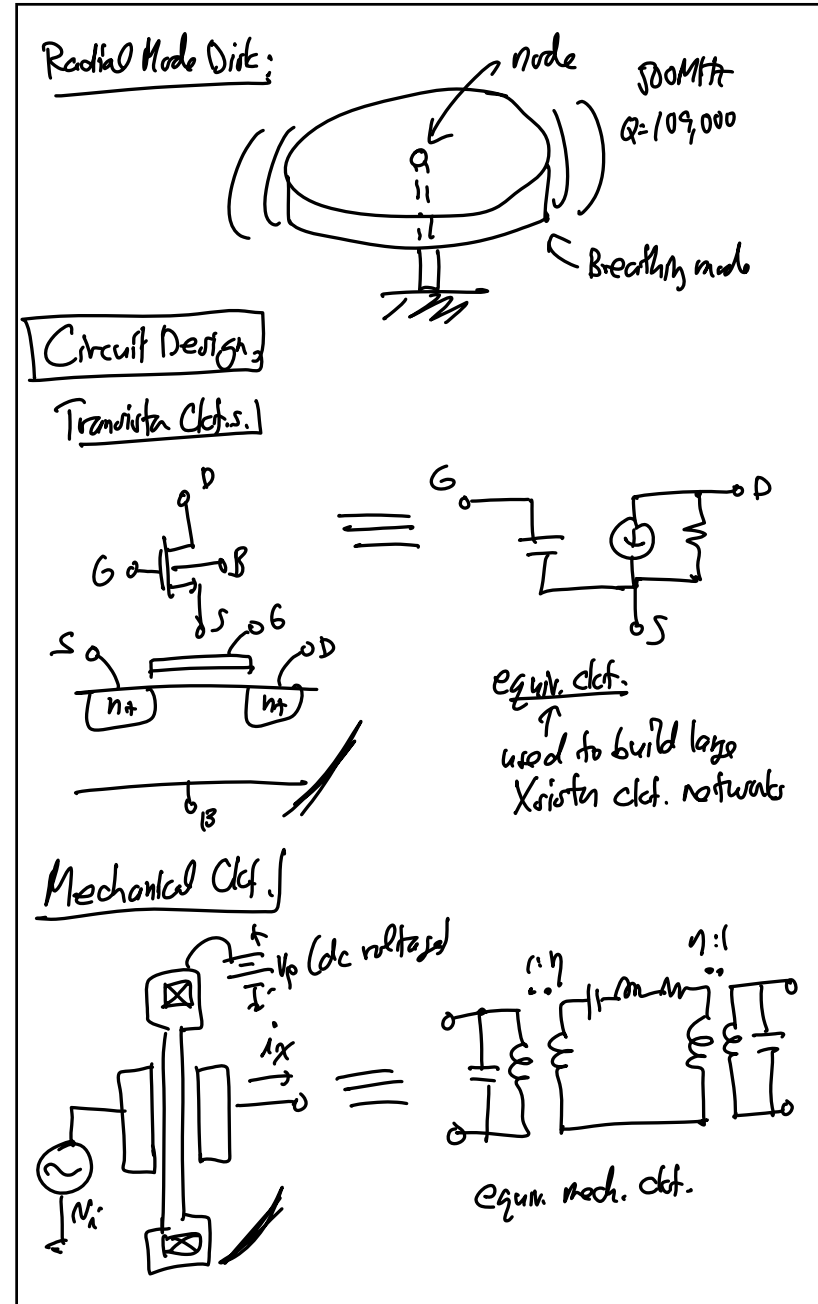 Radial Mode Disk:
node
500MHz
Q=109,000
Breathing mode
Circuit Design:
Transistor Ckt.s.
D
G
B
S
G
D
S
S
G
D
n+
n+
B
equiv. ckt.
used to build large
Xsistor ckt. networks
Mechanical Ckt.
+
-
Vp (dc voltage)
ix
vi
1:η
η:1
equiv. mech. ckt.